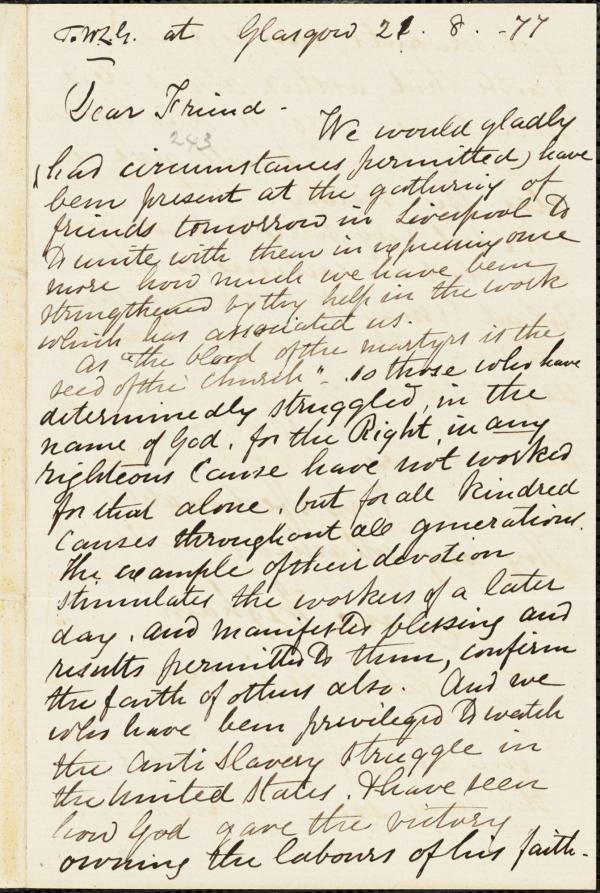 To W.L.G. at Glasgow 21. 8. -77
Dear Friend -
243
We would gladly
(had circumstances permitted) have
been present at the gathering of
friends tomorrow in Liverpool to
to unite with them in expressing once
more how much we have been
strengthened by thy help in the work
which has associated us.
As "the blood of the martyrs is the
seed of the church" - so those who have
determinedly struggled, in the
name of God, for the Right, in any
righteous Cause have not worked
for that alone, but for all kindred
causes throughout all generations.
The example of their devotion
stimulates the workers of a later
day, and manifested blessing and
results permitted to them, confirm
the faith of others also. And we
who have been privileged to watch
the Anti Slavery struggle in
the United States, & have seen
how God gave the victory
owning the labours of his faith-